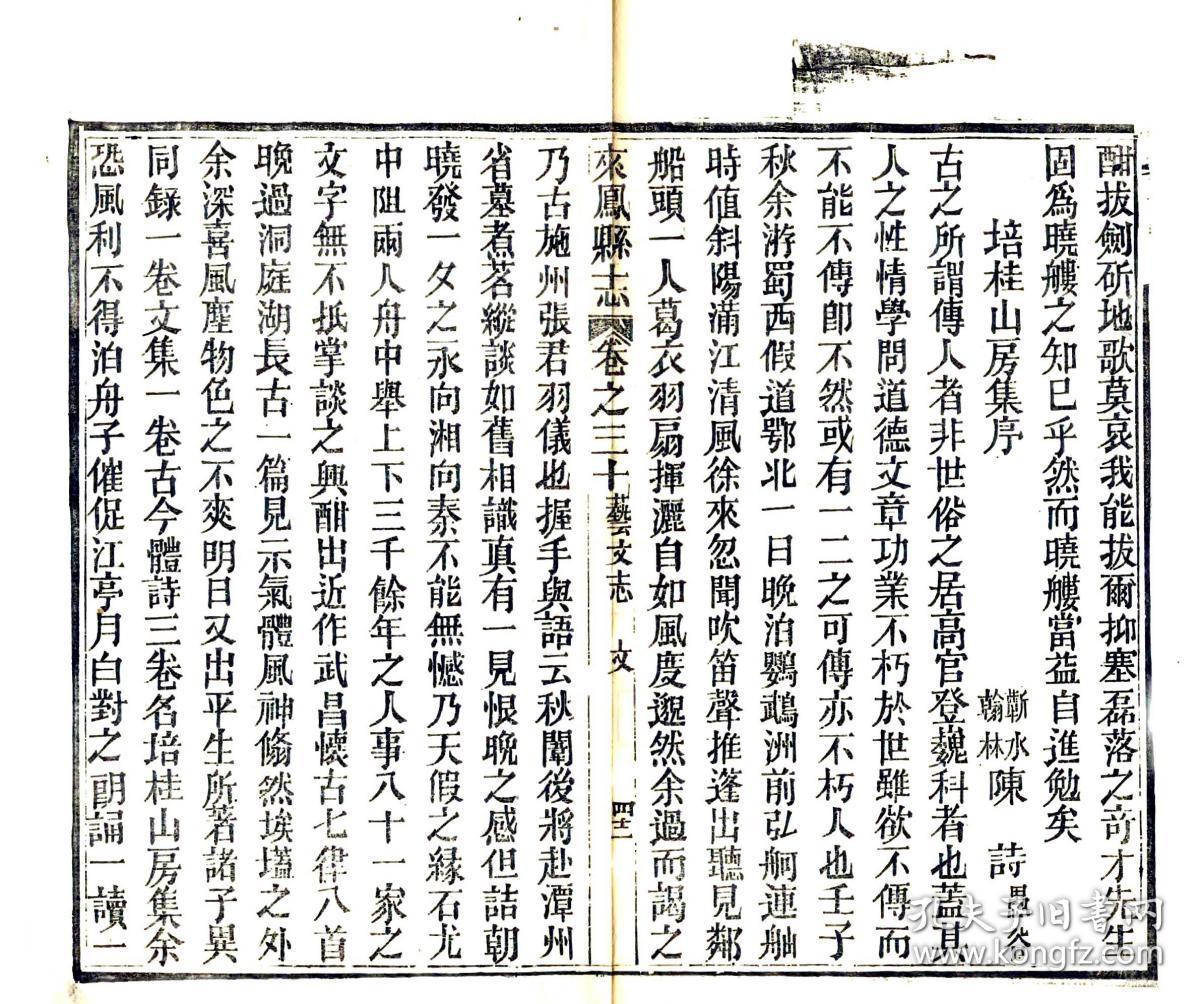 酣拔劍斫地歌莫哀我能拔爾抑塞磊落之竒才先生
固爲曉艛之知已乎然而曉艛當益自進勉矣
培桂山房集序
蘄水
翰林
陳
詩
古之所謂傳人者非世俗之居高官登巍科者也蓋其
人之性情學問道德文章功業不朽於世雖欲不傳而
不能不傳卽不然或有一二之可傳亦不朽人也壬子
秋余游蜀西假道鄂北一日晚泊鸚鵡洲前弘舸連舳
時值斜陽滿江清風徐來忽聞吹笛聲推蓬出聽見鄰
船頭一人葛衣羽扇揮灑自如風度逈然余過而謁之
來鳳縣志
卷之三十
藝文志
文
四十二
乃古施州張君羽儀也握手與語云秋闈後將赴潭州
省墓煮茗縱談如舊相識真有一見恨晚之感但詰朝
曉發一夕之永向湘向秦不能無憾乃天假之緣石尤
中阻兩人舟中舉上下三千餘年之人事八十一家之
文字無不抵掌談之興酣出近作武昌懷古七律八首
晚過洞庭湖長古一篇見示氣體風神翛然埃壒之外
余深喜風塵物色之不爽明日又出平生所著諸子異
同録一卷文集一卷古今體詩三卷名培桂山房集余
恐風利不得泊舟子催促江亭月白對之朗誦一讀一
孔夫子旧书网
www.kongfz.com